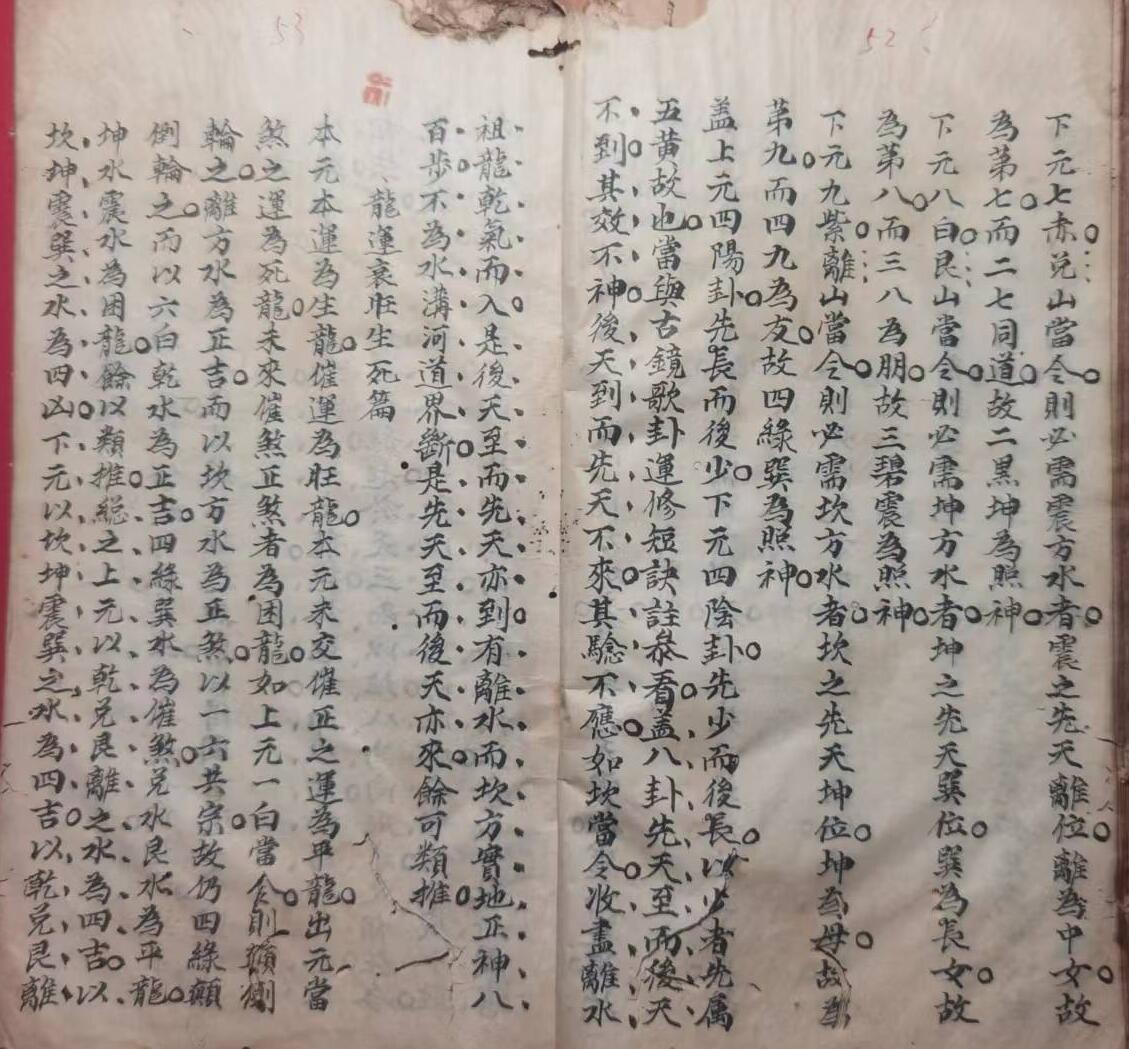 52
下元七赤兌山當令則必需震方水者震之先天離位離為中女故
為第七而二七同道故二黑坤為照神
下元八白艮山當令則必需坤方水者坤之先天巽位巽為長女故
為第八而三八為朋故三碧震為照神
下元九紫離山當令則必需坎方水者坎之先天坤位坤為母故為
第九而四九為友故四綠巽為照神
盖上元四陽卦先長而後少下元四陰卦先少而後長以少者先属
五黃故也當與古鏡歌卦運修短訣註叅看盖八卦先天至而後天
不到其效不神後天到而先天不來其騐不應如坎當令收盡離水
53
祖龍乾氣而入是後天至而先天亦到有離水而坎方實地正神八
百步不為水溝河道界斷是先天至而後天亦來餘可類推
龍運衰旺生死篇
本元本運為生龍催運為旺龍本元未交催正之運為平龍出元當
煞之運為死龍未來催煞正煞者為困龍如上元一白當令則顛倒
輪之離方水為正吉而以坎方水為正煞以一六共宗故仍四綠顛
倒輪之而以六白乾水為正吉四綠巽水為催煞兌水艮水為平龍
坤水震水為困龍餘以類推緫之上元以乾兌艮離之水為四吉以
坎坤震巽之水為四凶下元以坎坤震巽之水為四吉以乾兌艮離